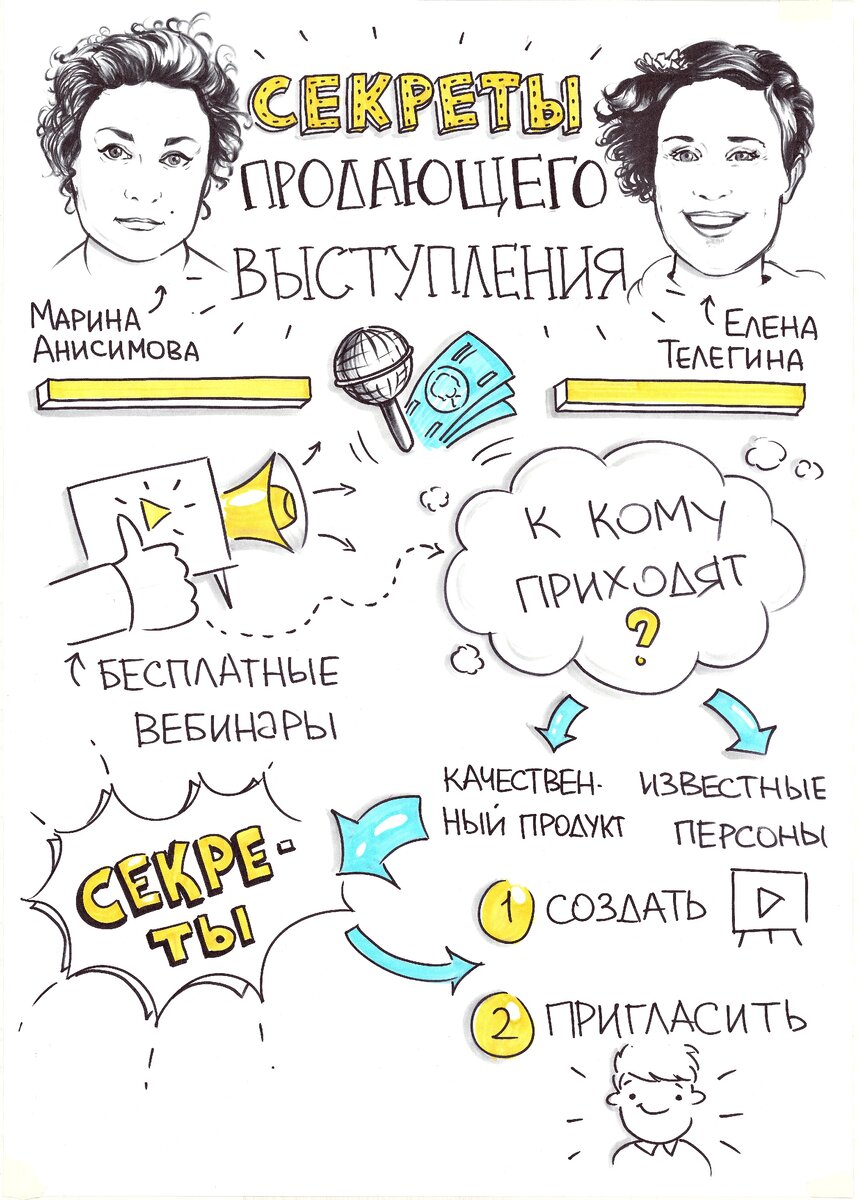 СЕКРЕТЫ
ПРОДАЮЩЕГО
ВЫСТУПЛЕНИЯ
МАРИНА
АНИСИМОВА
ЕЛЕНА
ТЕЛЕГИНА
БЕСПЛАТНЫЕ
ВЕБИНАРЫ
К КОМУ
ПРИХОДЯТ
?
КАЧЕСТВЕН-
НЫЙ ПРОДУКТ
ИЗВЕСТНЫЕ
ПЕРСОНЫ
СЕКРЕ-
ТЫ
1 СОЗДАТЬ
2 ПРИГЛАСИТЬ